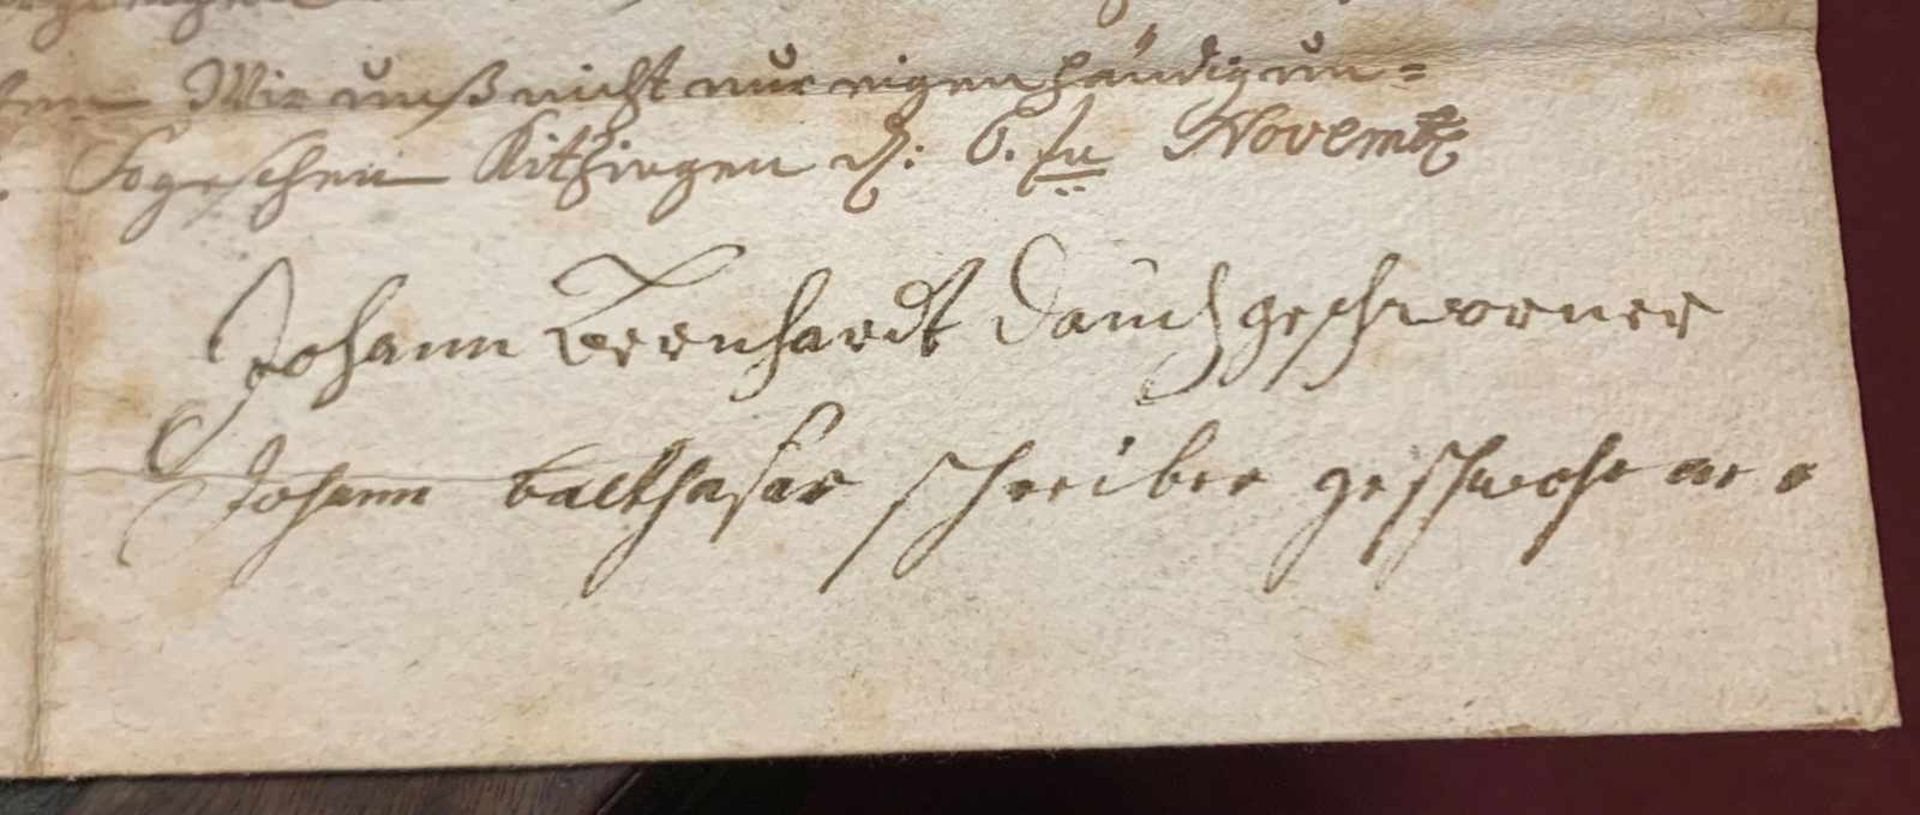 Wir unß nicht nur eigenhändig un=
So geschen Kitzingen d: 6. ten Novemb
Johann Bernhardt Dauch geschworner
Johann balthasar schreiber